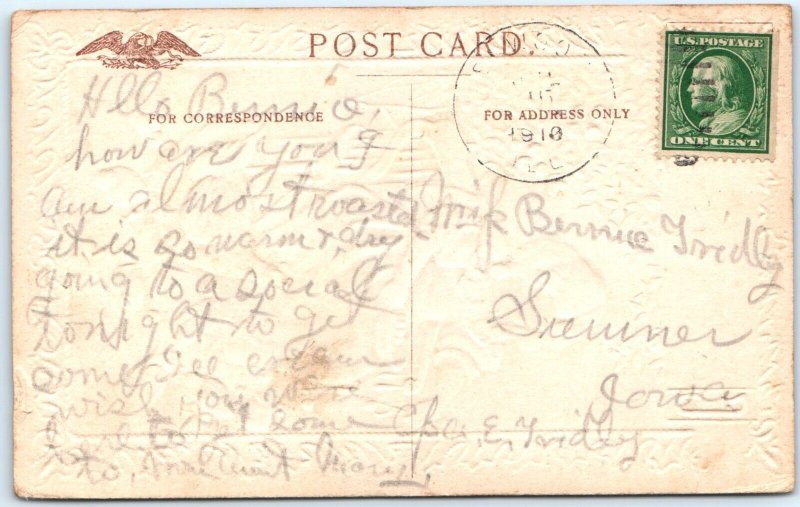 POST CARD
FOR CORRESPONDENCE
FOR ADDRESS ONLY
1910
U.S. POSTAGE
ONE CENT
Hllo Bernice,
how are you? I
am almost roasted
it is so warm & dry
going to a social
tonight to get
some Ice cream
wish you were
here to get some
to, from Aunt Mary,
Miss Bernice Fridly
Sumner
Iowa
E. Fridley